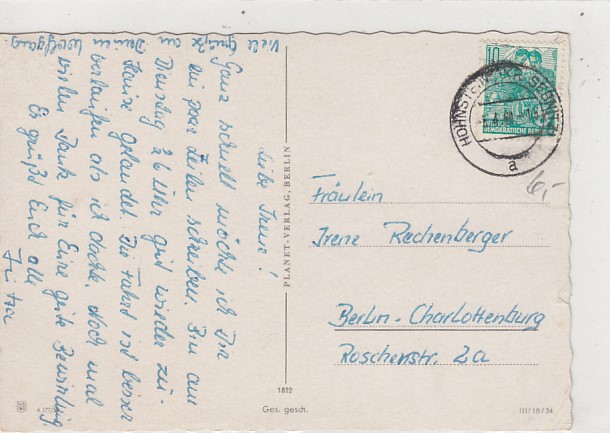 Liebe Irene!
Ganz schnell möchte ich Dir
ein paar Zeilen schreiben. Bin am
Dienstag 26 Uhr gut wieder zu-
Hause gelandet. Die Fahrt ist besser
verlaufen als ich dachte. Noch mal
vielen Dank für Eure gute Bewirtung.
Es grüßt Euch alle
Viele Grüße an
Deinen
Wolfgang.
PLANET-VERLAG, BERLIN
1872
Ges. gesch.
III/18/54
A 177/
10
DEUTSCHE
DEMOKRATISCHE REPUBLIK
HOHNSTEIN (KR. SEBNITZ)
a
6,-
Fräulein
Irene Rechenberger
Berlin-Charlottenburg
Roschenstr. 2a